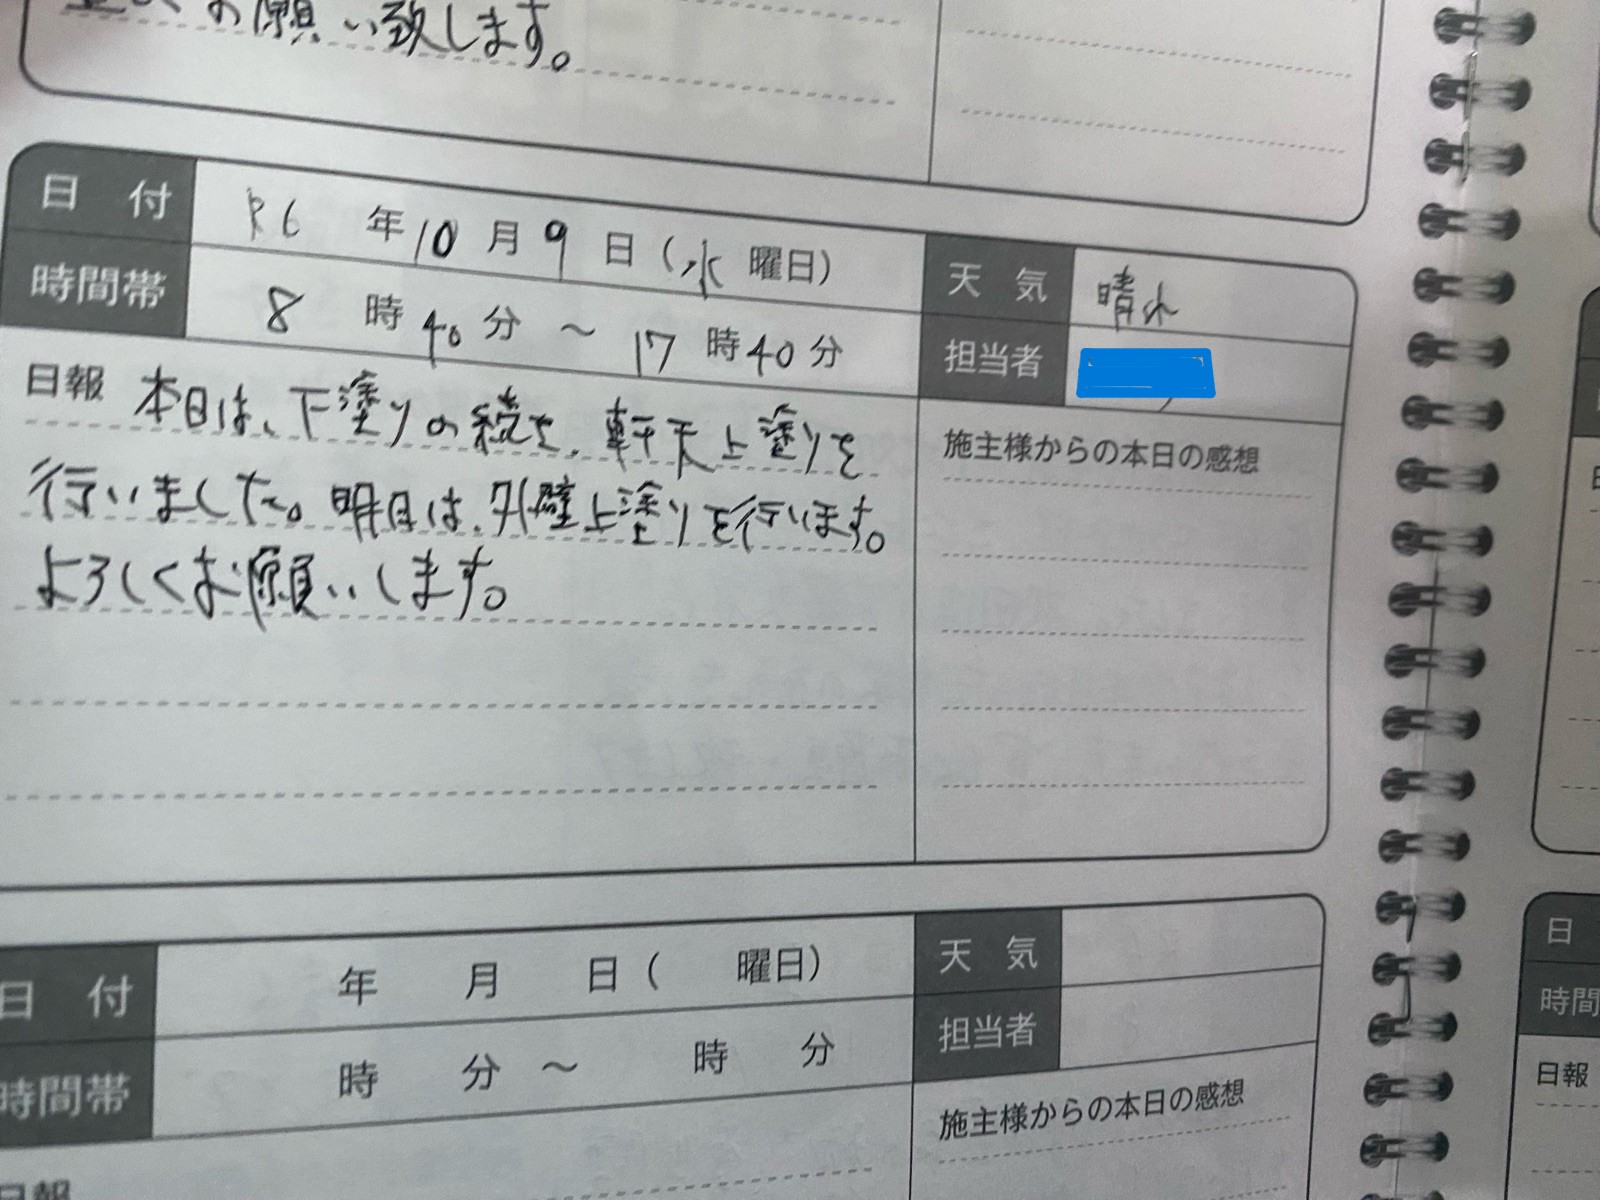 お願い致します。
日 付 R6 年 10 月 9 日 (水 曜日)
天 気 晴れ
時間帯 8 時 40 分 ～ 17 時 40 分
担当者
日報 本日は、下塗りの続き、軒天上塗りを
行いました。明日は、外壁上塗りを行います。
よろしくお願いします。
施主様からの本日の感想
日 付 年 月 日 ( 曜日)
天 気
時間帯 時 分 ～ 時 分
担当者
日報
施主様からの本日の感想
日
時間
日報